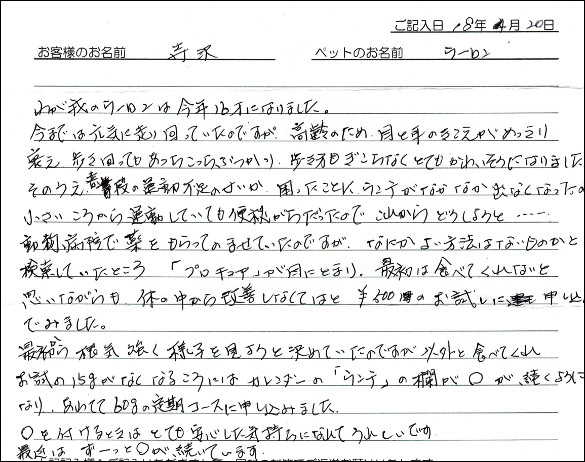 ご記入日 '8年 4月 20日
お客様のお名前 寺沢 ペットのお名前 ラーロン
わが家のラーロンは今年16才になりました。
今までは元気に走り回っていたのですが、高齢のため、目と耳のきこえがめっきり
衰え 歩き回ってもあっちこっちぶつかり、歩き方もぎこちなくとてもかわいそうになりました
そのうえ、高齢の運動不足のせいか、困ったことに ウンチがなかなか出なくなったの
小さいころから運動していても便秘がちだったので これからどうしようと ‥‥‥
動物病院で薬をもらってのませていたのですが、なにかよい方法はないものかと
検索していたところ 「プロキュア」が目にとまり、最初は食べてくれないと
思いながらも、体の中から改善しなくてはと ¥500のお試しに 申し込
でみました。
最初から 根気強く様子を見ようと決めていたのですが 以外と食べてくれ
お試の15gがなくなるころにはカレンダーの「ウンチ」の欄が ○ が続くように
なり、あわてて60gの定期コースに申し込みました。
○を付けるときは とても安心した気持ちになれてうれしいです
最近は ずーっと○が続いています。